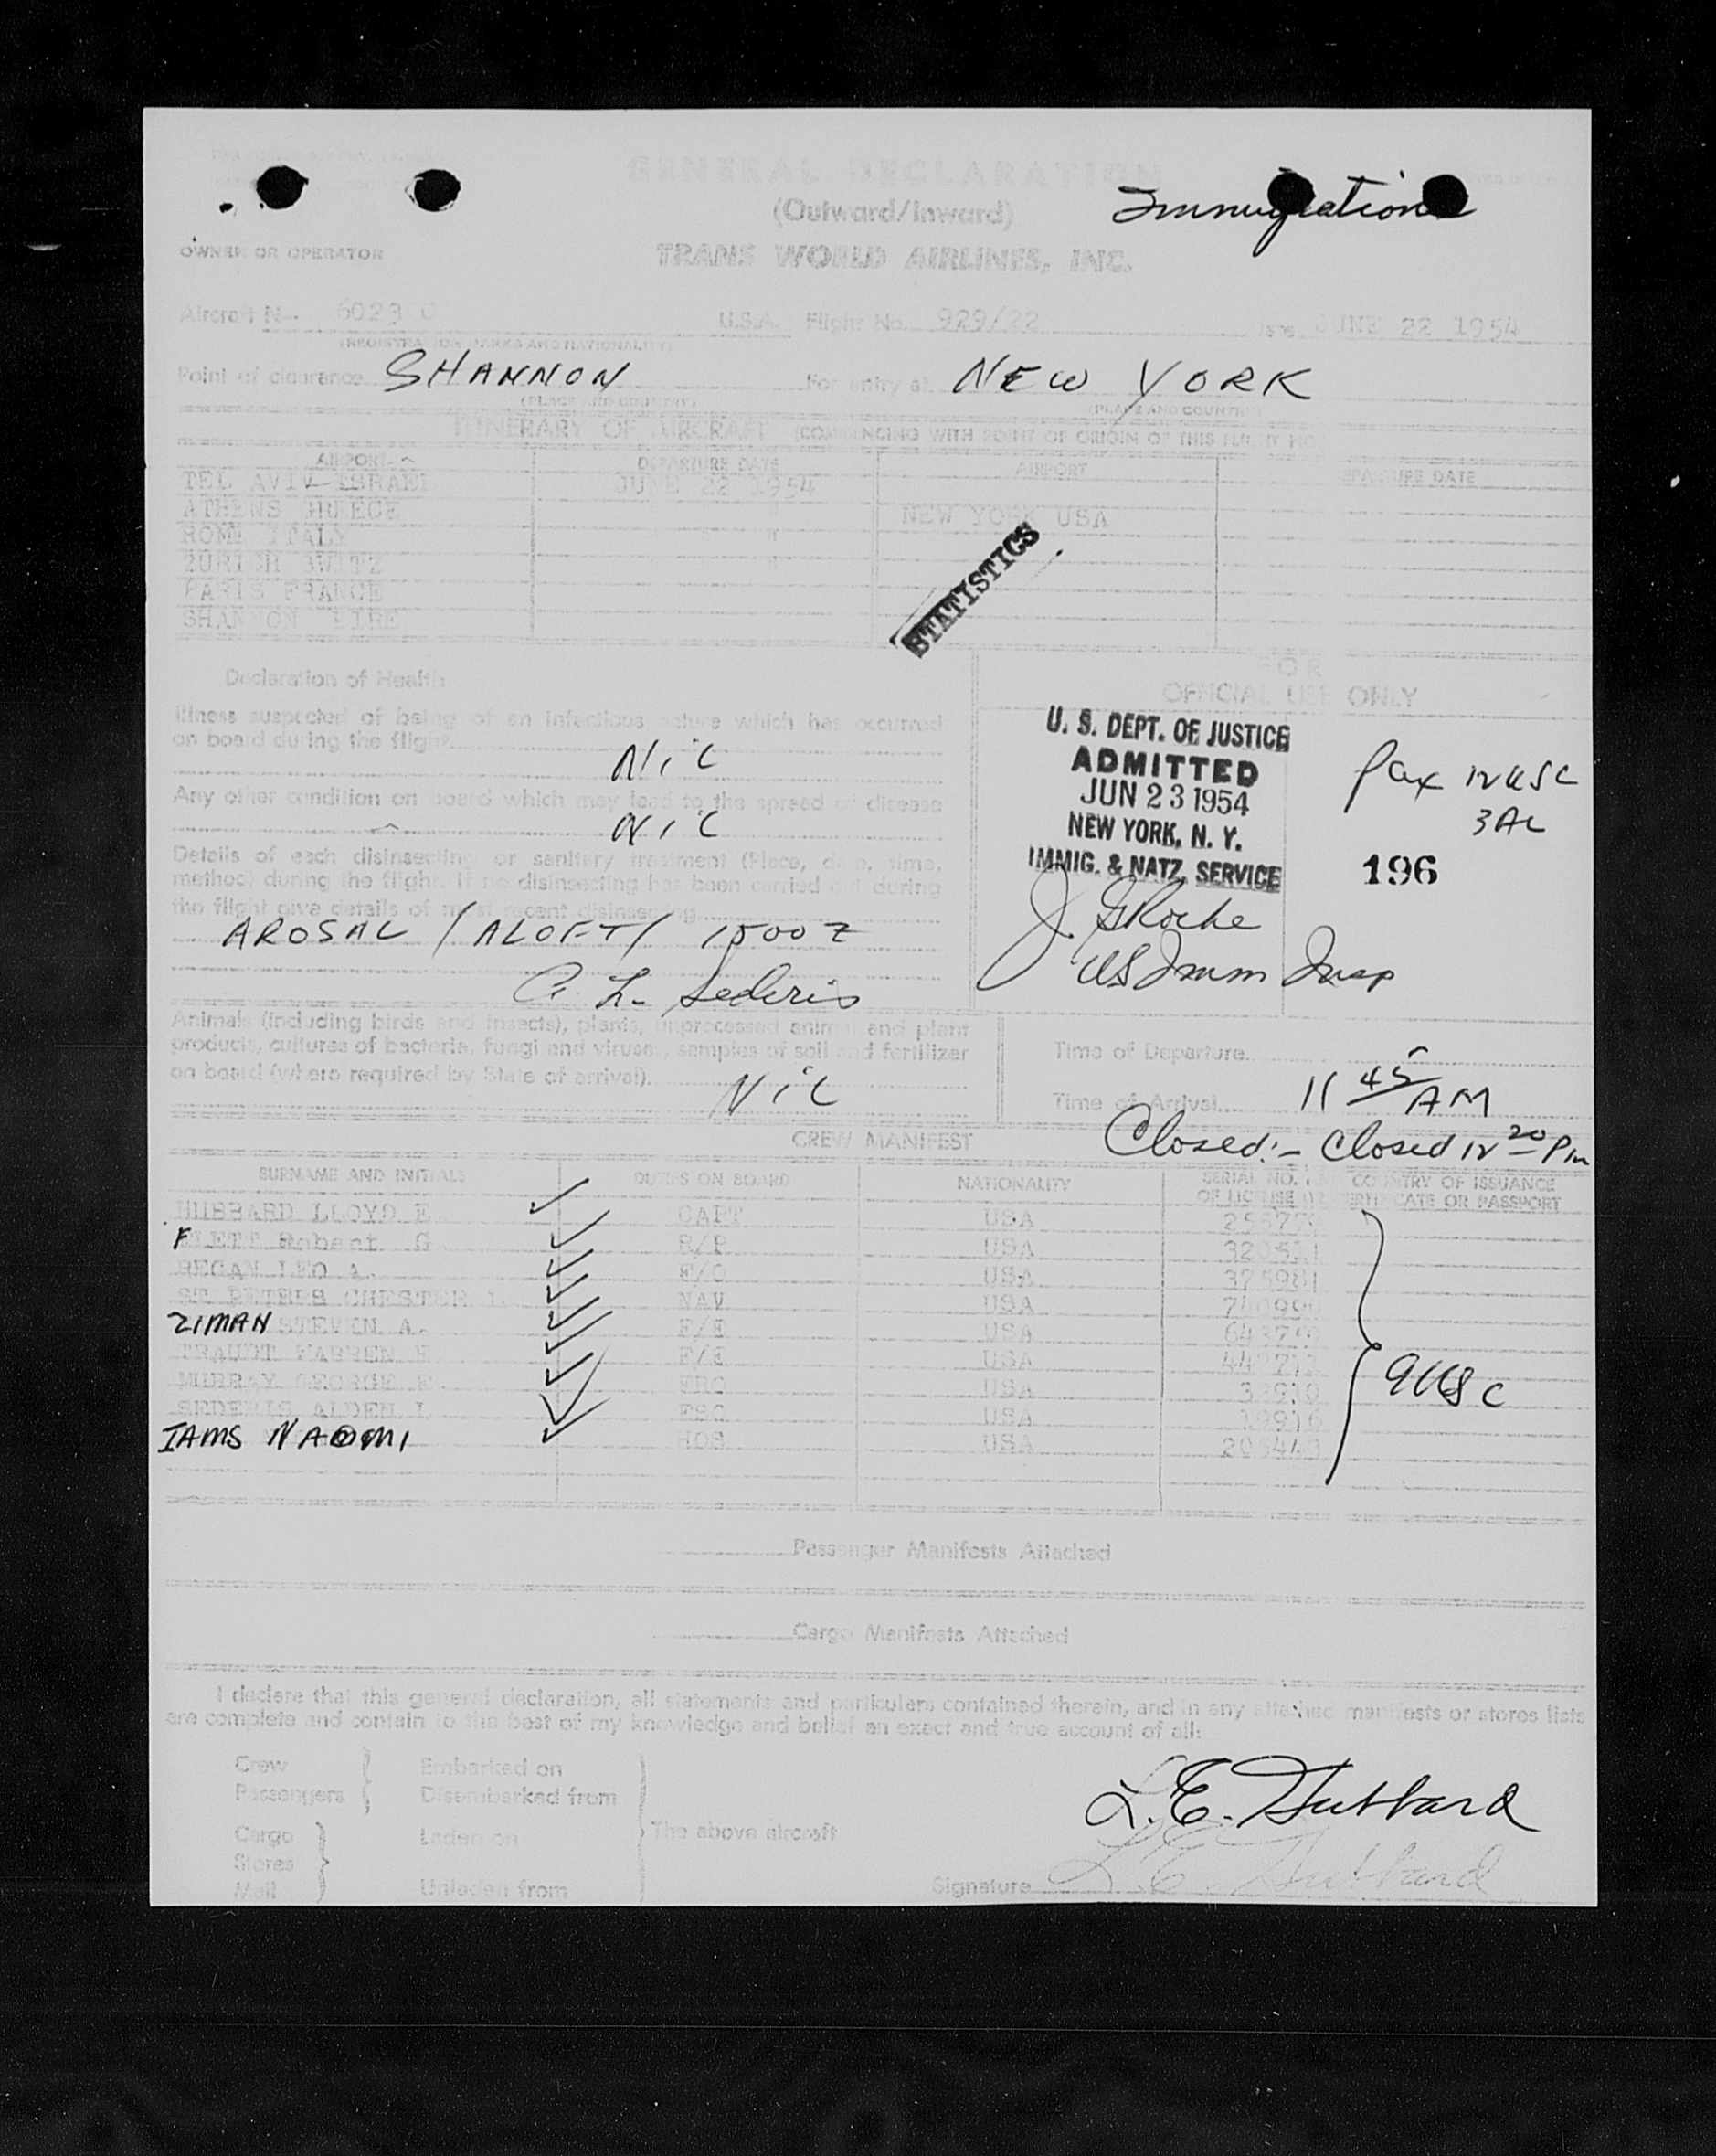 GENERAL DECLARATION
(Outward/Inward)
Immigration
OWNER OR OPERATOR
TRANS WORLD AIRLINES, INC.
Aircraft N-- 6023 C U.S.A. Flight No. 929/22 JUNE 22 1954
(REGISTRATION MARKS AND NATIONALITY)
Point of clearance SHANNON For entry at NEW YORK
(PLACE AND COUNTRY) (PLACE AND COUNTRY)
ITINERARY OF AIRCRAFT (COMMENCING WITH POINT OF ORIGIN OF THIS FLIGHT NO
AIRPORT DEPARTURE DATE AIRPORT DEPARTURE DATE
TEL AVIV ISRAEL JUNE 22 1954
ATHENS GREECE " NEW YORK USA
ROME ITALY "
ZURICH SWITZ "
PARIS FRANCE
SHANNON EIRE
STATISTICS
Declaration of Health
FOR
OFFICIAL USE ONLY
Illness suspected of being of an infectious nature which has occurred
on board during the flight
Nil
Any other condition on board which may lead to the spread of disease
Nil
Details of each disinsecting or sanitary treatment (Place, date, time,
method) during the flight. If no disinsecting has been carried out during
the flight give details of most recent disinsecting
AROSAL / ALOFT / 1500 Z
A. L. Sederis
U. S. DEPT. OF JUSTICE
ADMITTED
JUN 23 1954
NEW YORK, N. Y.
IMMIG. & NATZ. SERVICE
Pax 12 USC
3 AL
196
J. G Roche
US Imm Insp
Animals (including birds and insects), plants, unprocessed animal and plant
products, cultures of bacteria, fungi and viruses, samples of soil and fertilizer
on board (where required by State of arrival).
Nil
Time of Departure
Time of Arrival 11 45 AM
Closed:- Closed 12 20 Pm
CREW MANIFEST
SURNAME AND INITIALS DUTIES ON BOARD NATIONALITY SERIAL NO. COUNTRY OF ISSUANCE
OF LICENSE CERTIFICATE OR PASSPORT
HUBBARD LLOYD E CAPT USA
FLETT Robert G R/P USA
REGAN LEO A. F/O USA
ST PETERS CHESTER NAV USA
ZIMAN STEVEN A. F/E USA
TRAUDT WARREN F/E USA
MURRAY GEORGE FRO USA
SEDERIS ALDEN L FSC USA
IAMS NAOMI HOS USA
9 USC
Passenger Manifests Attached
Cargo Manifests Attached
I declare that this general declaration, all statements and particulars contained therein, and in any attached manifests or stores lists
are complete and contain to the best of my knowledge and belief an exact and true account of all:
Crew Embarked on
Passengers Disembarked from
Cargo Laden on The above aircraft
Stores
Mail Unladen from
L. E. Hubbard
Signature L. E. Hubbard